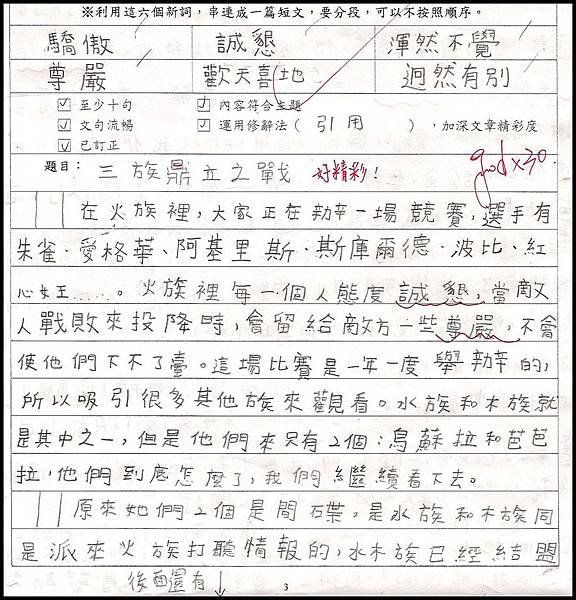 ※利用這六個新詞,串連成一篇短文,要分段,可以不按照順序。
驕傲 誠懇 渾然不覺
尊嚴 歡天喜地 迥然有別
☑至少十句 ☑內容符合主題
☑文句流暢 ☑運用修辭法(引用),加深文章精彩度
☑已訂正
題目:三族鼎立之戰 好精彩! good x30
在火族裡,大家正在辦一場競賽,選手有
朱雀、愛格華、阿基里斯、斯庫爾德、波比、紅
心女王……。火族裡每一個人態度誠懇,當敵
人戰敗來投降時,會留給敵方一些尊嚴,不會
使他們下不了臺。這場比賽是一年一度舉辦的,
所以吸引很多其他族來觀看。水族和木族就
是其中之一,但是他們來只有2個:烏蘇拉和芭芭
拉,他們到底怎麼了,我們繼續看下去。
原來她們2個是間碟,是水族和木族同
是派來火族打聽情報的,水木族已經結盟
後面還有↓
3